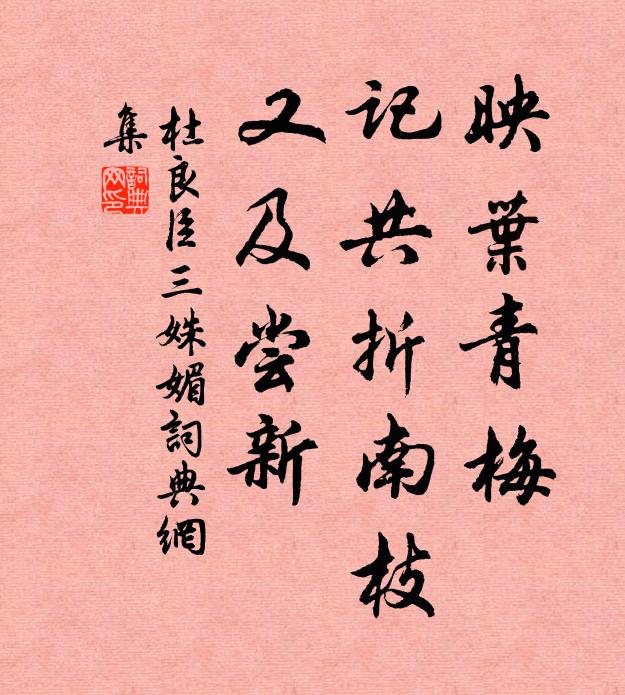 映葉青梅
記共折南枝
又及尝新
杜良臣三姝媚詞典網
集
詞典
网印